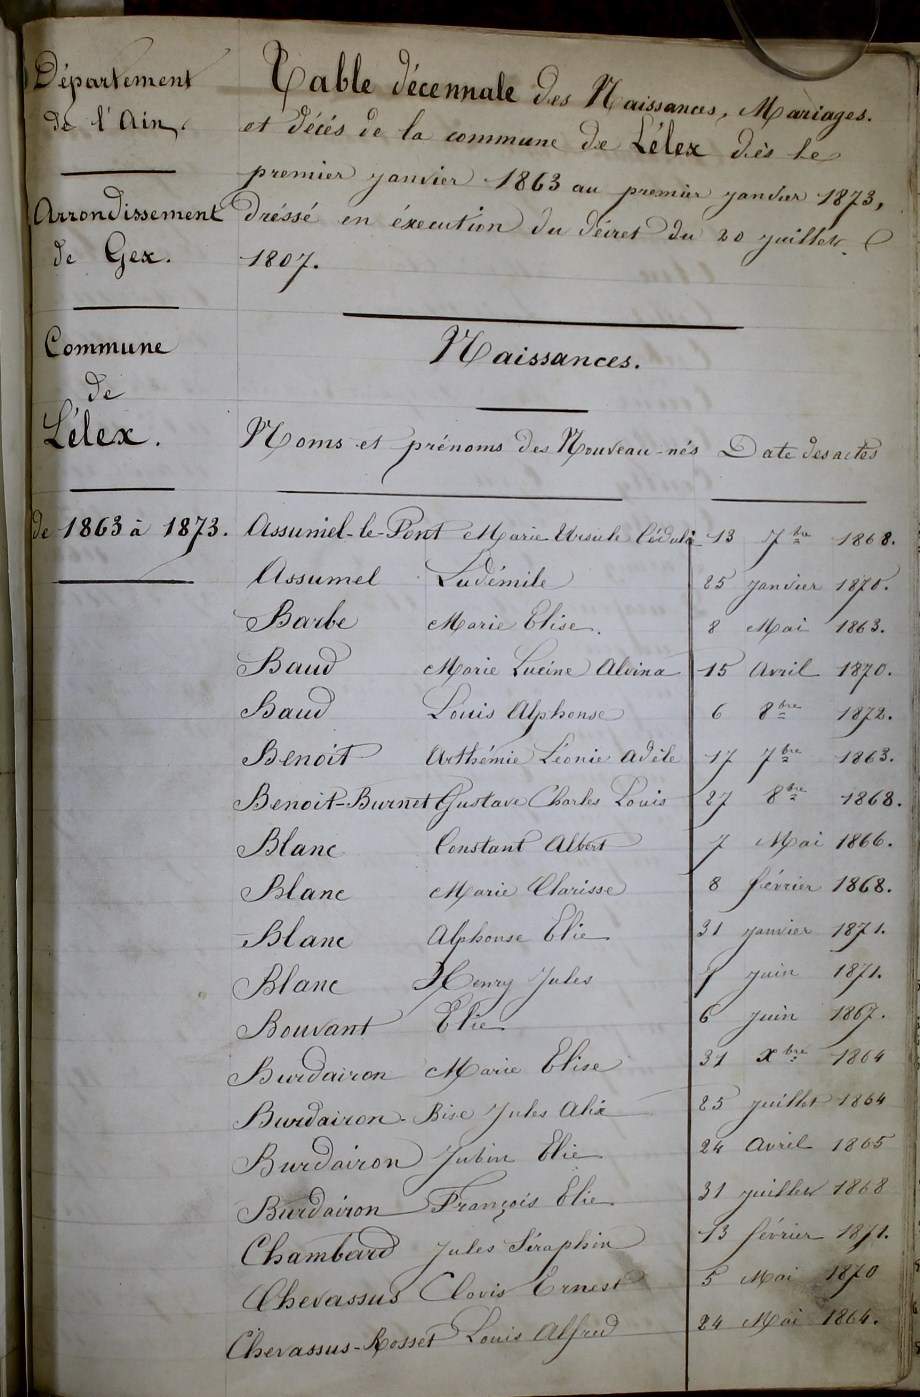 Département
de l'Ain.
Arrondissement
de Gex.
Commune
de
Lélex.
de 1863 à 1873.
Table décennale des Naissances, Mariages.
et décés de la commune de Lélex dès le
premier janvier 1863 au premier janvier 1873,
dréssé en éxécution du décret du 20 juillet
1807.
Naissances.
Noms et prénoms des Nouveau-nés Date des actes
Assumel-le-Pont Marie Ursule 13 7bre 1868.
Assumel Ludémile 25 janvier 1870.
Barbe Marie Elise. 8 Mai 1863.
Baud Marie Lucine Alvina 15 Avril 1870.
Baud Louis Alphonse 6 8bre 1872.
Benoit Arthémie Léonie Adèle 17 7bre 1863.
Benoit-Burnet Gustave Charles Louis 27 8bre 1868.
Blanc Constant Albert 7 Mai 1866.
Blanc Marie Clarisse 8 février 1868.
Blanc Alphonse Elie 31 janvier 1871.
Blanc Henry Jules juin 1871.
Bouvant Elie 6 juin 1867.
Burdairon Marie Elise 31 Xbre 1864
Burdairon-Bise Jules Alix 25 juillet 1864
Burdairon Jubin Elie 24 Avril 1865
Burdairon François Elie 31 juillet 1868
Chambard Jules Séraphin 13 février 1871.
Chevassus Clovis Ernest 5 Mai 1870
Chevassus-Rosset Louis Alfred 24 Mai 1864.